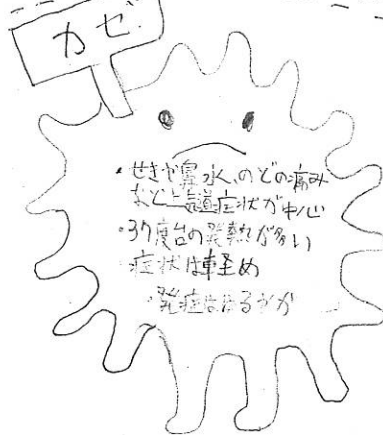 カゼ
・せきや鼻水、のどの痛み
など上気道症状が中心
・37度台の発熱が多い
症状は軽め
・発症はゆるやか